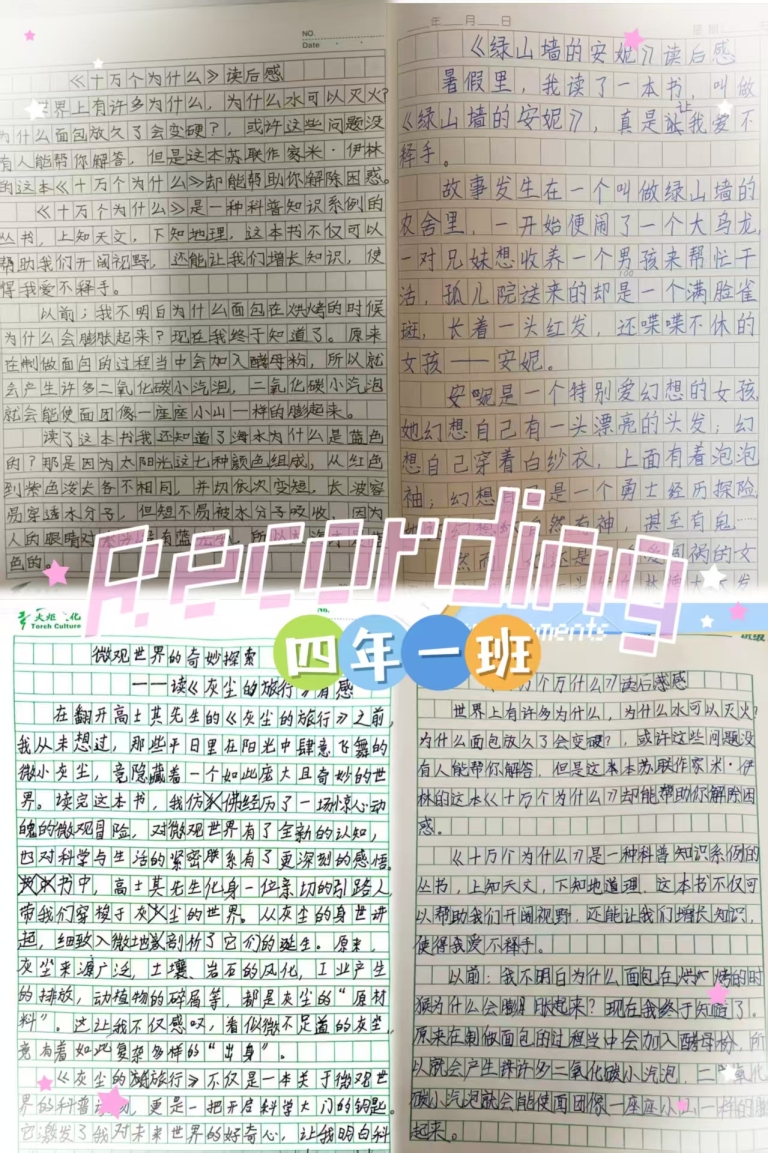 NO.
Date
《十万个为什么》读后感
世界上有许多为什么,为什么水可以灭火?
为什么面包放久了会变硬?,或许这些问题没
有人能帮你解答,但是这本苏联作家米·伊林
的这本《十万个为什么》却能帮助你解除困惑。
《十万个为什么》是一种科普知识系例的
丛书,上知天文,下知地理,这本书不仅可以
帮助我们开阔视野,还能让我们增长知识,使
得我爱不释手。
以前;我不明白为什么面包在烘烤的时候
为什么会膨胀起来?现在我终于知道了。原来
在制做面包的过程当中会加入酵母粉,所以就
会产生许多二氧化碳小汽泡,二氧化碳小汽泡
就会能使面团像一座座小山一样的膨起来。
读了这本书我还知道了海水为什么是蓝色
的?那是因为太阳光这七种颜色组成,从红色
到紫色波长各不相同,并切依次变短,长波容
易穿透水分子,但短不易被水分子吸收,因为
人的眼睛对
色的。
年 月 日
星期
《绿山墙的安妮》读后感
暑假里,我读了一本书,叫做
《绿山墙的安妮》,真是让我爱不
释手。
故事发生在一个叫做绿山墙的
农舍里,一开始便闹了一个大乌龙,
一对兄妹想收养一个男孩来帮忙干
活,孤儿院送来的却是一个满脸雀
斑,长着一头红发,还喋喋不休的
女孩——安妮。
安妮是一个特别爱幻想的女孩
她幻想自己有一头漂亮的头发;幻
想自己穿着白纱衣,上面有着泡泡
袖;幻想自己是一个勇士经历探险
有神,甚至有鬼……
然而
祸的女
Recording
四年一班
Torch Culture
No.
微观世界的奇妙探索
——读《灰尘的旅行》有感
在翻开高士其先生的《灰尘的旅行》之前,
我从未想过,那些平日里在阳光中肆意飞舞的
微小灰尘,竟隐藏着一个如此庞大且奇妙的世
界。读完这本书,我仿佛经历了一场惊心动
魄的微观冒险,对微观世界有了全新的认知,
也对科学与生活的紧密联系有了更深刻的感悟。
书中,高士其先生化身一位亲切的引路人
带我们穿梭于灰尘的世界。从灰尘的身世讲
起,细致入微地剖析了它们的诞生。原来,
灰尘来源广泛,土壤、岩石的风化,工业产生
的排放,动植物的碎屑等,都是灰尘的“原材
料”。这让我不仅感叹,看似微不足道的灰尘,
竟有着如此复杂多样的“出身”。
《灰尘的旅行》不仅是一本关于微观世
界的科普读物,更是一把开启科学大门的钥匙。
它激发了我对未来世界的好奇心,让我明白科
班级
万个万什么》读后感感
世界上有许多为什么,为什么水可以灭火?
为什么面包放久了会变硬?,或许这些问题没
有人能帮你解答,但是这本本苏联作家米·伊
林的这本《十万个为什么》却能帮助你解除困
惑。
《十万个为什么》是一种科普知识系例的
丛书,上知天文,下知地道理,这本书不仅可
以帮助我们开阔视野,还能让我们增长知识,
使得我爱不释手。
以前;我不明白为什么面包在烘烤的时
候为什么会膨胀起来?现在我终于知道了。
原来在制做面包的过程当中会加入酵母粉,所
以就会产生许多二氧化碳小汽泡,二氧化
碳小汽泡就会能使面团像一座座小山一样的膨
起来。